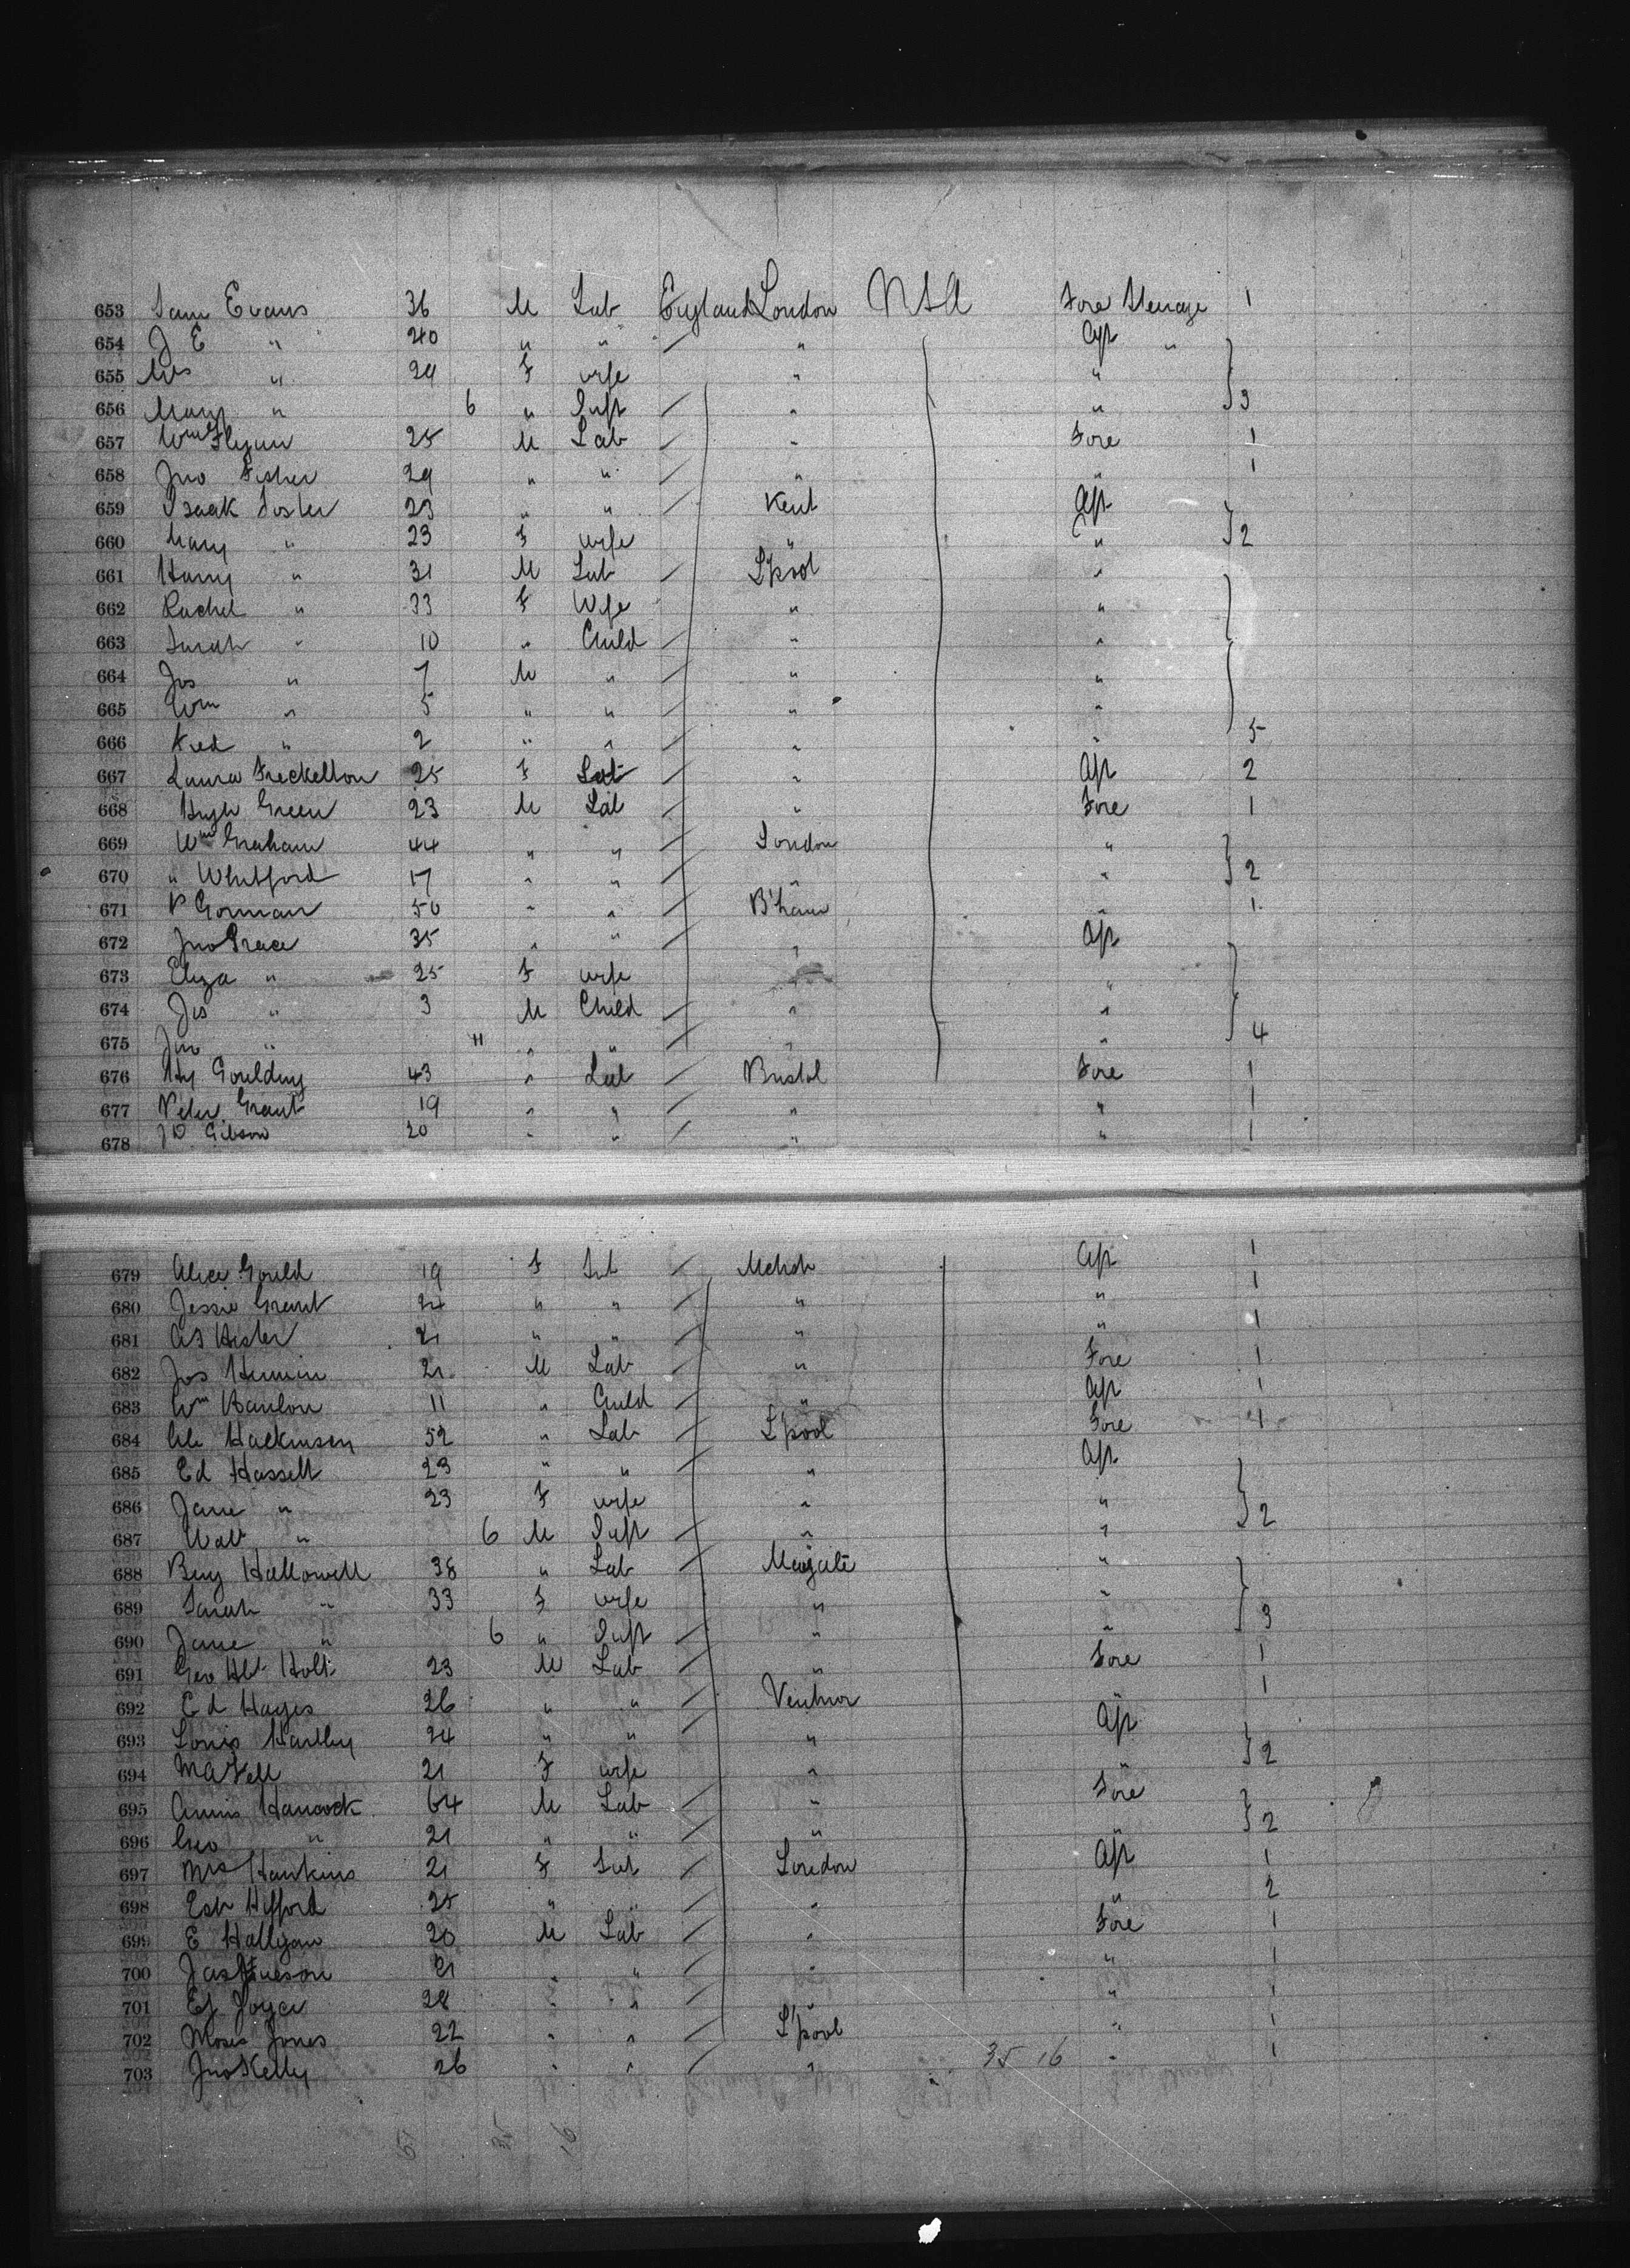 653 Sam Evans 36 M Lab England London USA Fore Steerage 1
654 J E " 40 " " / " Aft "
655 Mrs " 29 F wife " " } 3
656 Mary " 6 " Inft / " "
657 Wm Flynn 25 M Lab / " Fore 1
658 Jno Fisher 29 " " / " " 1
659 Isaak Foster 23 " " / Kent Aft
660 Mary " 23 F wife " " } 2
661 Harry " 31 M Lab / L'pool "
662 Rachel " 33 F Wife " "
663 Sarah " 10 " Child / " "
664 Jos " 7 M " / " "
665 Wm " 5 " " / " "
666 " 2 " " / " " 5
667 Laura Freckelton 25 F / " Aft 2
668 Hugh Green 23 M Lab / " Fore 1
669 Wm Graham 44 " " / London "
670 " Whitford 17 " " / " " } 2
671 P Gorman 50 " " / B'ham " 1
672 Jno 35 " " / " Aft
673 Eliza " 25 F wife " "
674 Jos " 3 M Child / " "
675 Jno " 11 " " / " " 4
676 Hy Goulding 43 " Lab / Bristol Fore 1
677 Peter Grant 19 " " / " " 1
678 Gibson 20 " " / " " 1
679 Alice Gould 19 F / Aft 1
680 Jessie Grant 24 " " / " " 1
681 Hester 21 " " / " " 1
682 Jos 21 M Lab / " Fore 1
683 Wm Hanlon 11 " Child / " Aft 1
684 52 " Lab / L'pool Fore 1
685 Ed Hassell 23 " " / " Aft
686 Jane " 23 F wife " " } 2
687 Walt " 6 M Inft / " "
688 Benj Hallowell 38 " Lab / Margate "
689 Sarah " 33 F wife " " } 3
690 Jane " 6 " Inft / " "
691 Geo Holt 23 M Lab / " Fore 1
692 Ed Hayes 26 " " / Ventnor 1
693 Louis Hartley 24 " " / " Aft
694 21 F wife " " } 2
695 Hancock 64 M Lab / " Fore
696 Geo " 21 " " / " " } 2
697 Mrs Hawkins 21 F / London Aft 1
698 25 " " / " " 2
699 E Halligan 20 M Lab / " Fore 1
700 Jas 21 " " / " " 1
701 Joyce 28 " " / " " 1
702 Moses Jones 22 " " / L'pool " 1
703 Jno Kelly 26 " " / " 35 16 " 1
51 35 16